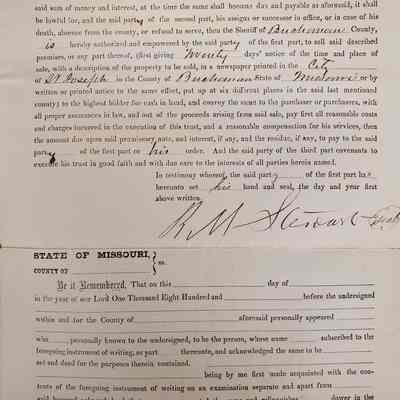 said sum of money and interest, at the time the same shall become due and payable as aforesaid, it
be lawful for, and the said party of the second part, his assigns or successor in office, or in case of his
death, absence from the county, or refusal to serve, then the Sheriff of Buchanan County,
is hereby authorized and empowered by the said party of the first part, to sell said described
premises, or any part thereof, first giving Twenty days' notice of the time and place of
sale, with a description of the property to be sold, in a newspaper printed in the City
of St Joseph in the County of Buchanan State of Missouri or by
written or printed notice to the same effect, put up at six different places in the said last mentioned
county) to the highest bidder for cash in hand, and convey the same to the purchaser or purchasers, with
all proper assurances in law, and out of the proceeds arising from said sale, pay first all reasonable costs
and charges incurred in the execution of this trust, and a reasonable compensation for his services, then
the amount due upon said promissory note, and interest, if any, and the residue, if any, to pay to the said
party of the first part or his order. And the said party of the third part covenants to
execute his trust in good faith and with due care to the interests of all parties herein named.
In testimony whereof, the said party of the first part has
hereunto set his hand and seal, the day and year first
above written.
R M Stewart
STATE OF MISSOURI,
COUNTY OF } ss.
Be it Remembered, That on this day of
in the year of our Lord One Thousand Eight Hundred and before the undersigned
within and for the County of aforesaid personally appeared
who personally known to the undersigned, to be the person, whose name subscribed to the
foregoing instrument of writing, as part thereunto, and acknowledged the same to be
act and deed for the purposes therein contained.
being by me first made acquainted with the con-
tents of the foregoing instrument of writing on an examination separate and apart from
said husband acknowledged that relinquishes dower in the